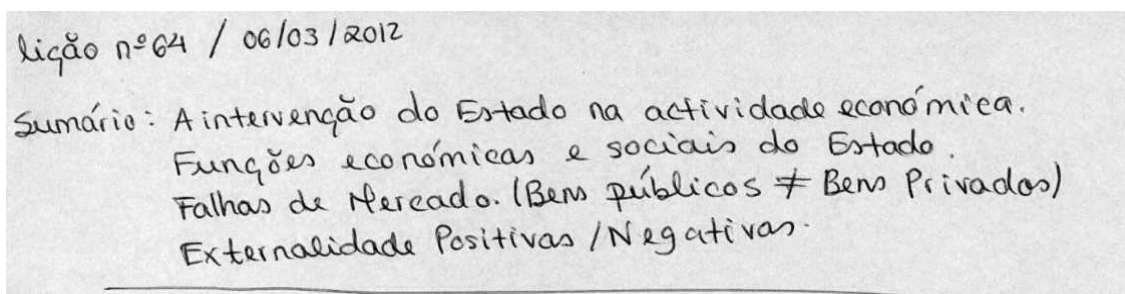 lição nº64 / 06/03/2012
Sumário: A intervenção do Estado na actividade económica.
Funções económicas e sociais do Estado.
Falhas de Mercado. (Bens públicos ≠ Bens Privados)
Externalidade Positivas / Negativas.